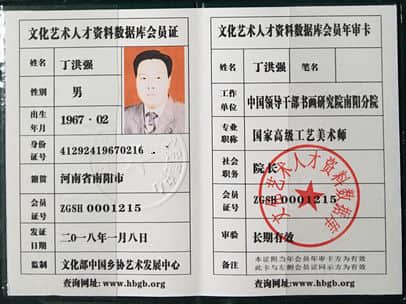 文化艺术人才资料数据库会员证
姓名 丁洪强
性别 男
出生年月 1967·02
身份证号 41292419670216
籍贯 河南省南阳市
会员证号 ZGSH 0001215
发证日期 二〇一八年一月八日
监制 文化部中国乡协艺术发展中心
查询网址: www.hbgb.org
文化艺术人才资料数据库会员年审卡
姓名 丁洪强 笔名
工作单位 中国领导干部书画研究院南阳分院
专业职称 国家高级工艺美术师
社会职务 院长
会员证号 ZGSH 0001215
审验 长期有效
备注 本证附当年会员年审卡方为有效
此卡与左侧会员证同示方为有效
查询网址: www.hbgb.org
文化艺术人才资料数据库